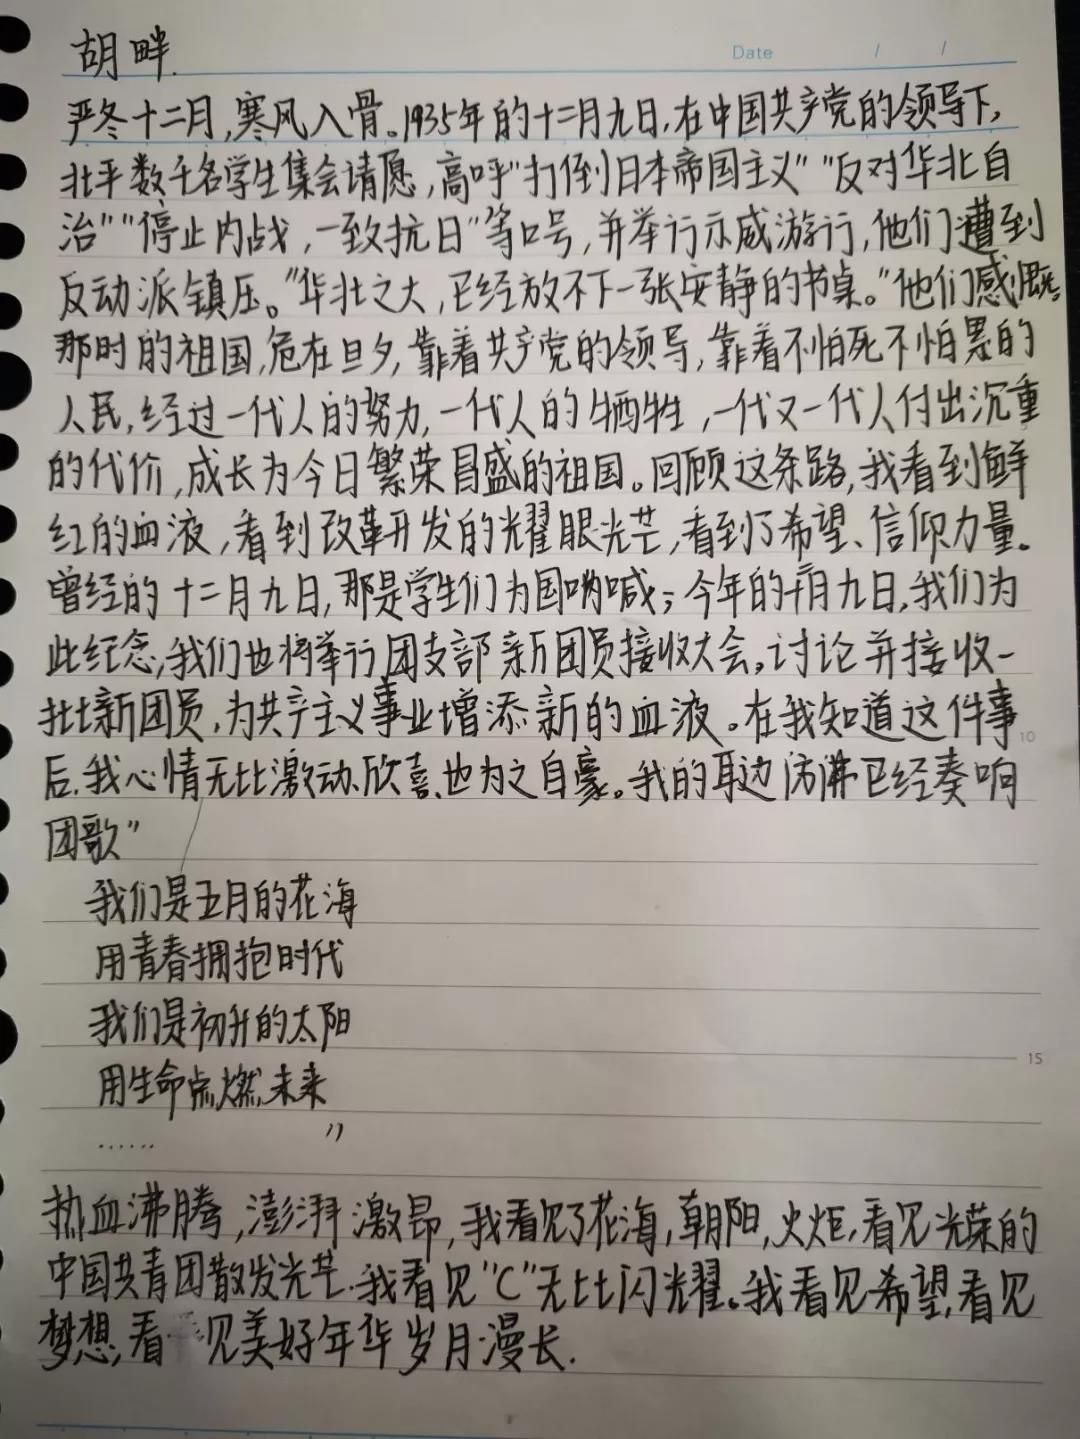 胡畔
Date / /
严冬十二月,寒风入骨。1935年的十二月九日,在中国共产党的领导下,
北平数千名学生集会请愿,高呼“打倒日本帝国主义”“反对华北自
治”“停止内战,一致抗日”等口号,并举行示威游行,他们遭到
反动派镇压。“华北之大,已经放不下一张安静的书桌。”他们感慨。
那时的祖国,危在旦夕,靠着共产党的领导,靠着不怕死不怕累的
人民,经过一代人的努力,一代人的牺牲,一代又一代人付出沉重
的代价,成长为今日繁荣昌盛的祖国。回顾这条路,我看到鲜
红的血液,看到改革开发的光耀眼光芒,看到了希望、信仰力量。
曾经的十二月九日,那是学生们为国呐喊;今年的十二月九日,我们为
此纪念,我们也将举行团支部新团员接收大会。讨论并接收一
批新团员,为共产主义事业增添新的血液。在我知道这件事
10
后,我心情无比激动、欣喜,也为之自豪。我的耳边仿沸已经奏响
团歌”
我们是五月的花海
用青春拥抱时代
我们是初升的太阳
15
用生命点燃未来
……”
热血沸腾,澎湃激昂,我看见了花海,朝阳,火炬,看见光荣的
中国共青团散发光芒.我看见“C”无比闪光耀。我看见希望,看见
梦想,看见美好年华岁月漫长.